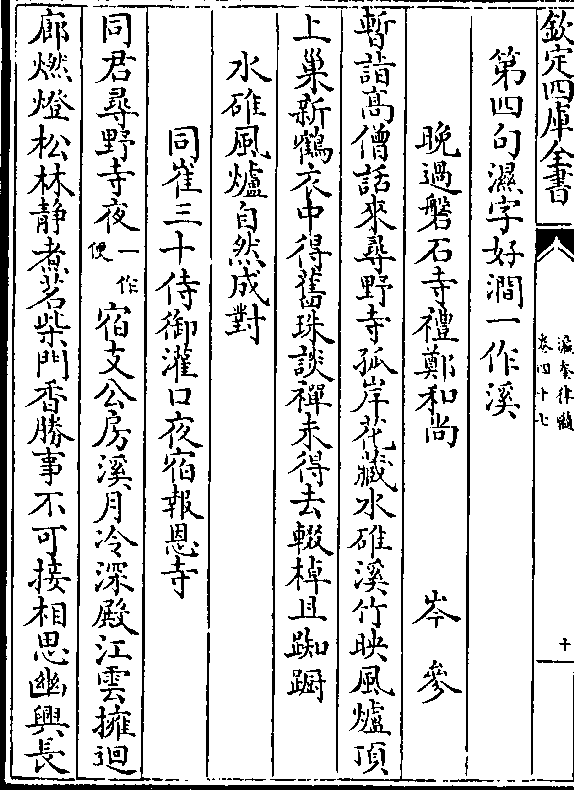 欽定四庫全書
瀛奎律髓
卷四十七
十
第四句濕字好澗一作溪
晚過磐石寺禮鄭和尚　岑參
暫詣高僧話來尋野寺孤岸花藏水碓溪竹映風爐頂
上巢新鶴衣中得舊珠談禪未得去輟棹且踟躕
水碓風爐自然成對
同崔三十侍御灌口夜宿報恩寺
同君尋野寺夜一作便宿支公房溪月冷深殿江雲擁迴
廊燃燈松林静煮茗柴門香勝事不可接相思幽興長